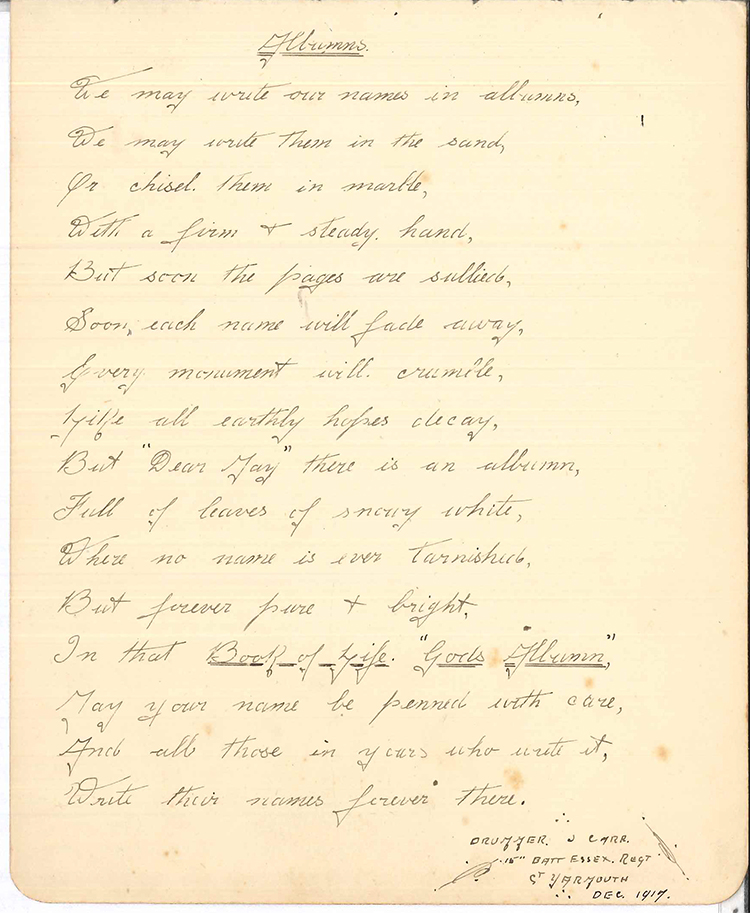 Albumns.
We may write our names in albumns,
We may write them in the sand,
Or chisel. them in marble,
With a firm & steady. hand,
But soon the pages are sullied,
Soon, each name will fade away,
Every monument will. crumble,
Like all earthly hopes decay,
But "Dear May" there is an albumn,
Full of leaves of snowy white,
Where no name is ever tarnished,
But forever pure & bright,
In that Book of Life. "Gods Albumn",
May your name be penned with care,
And all those in yours who write it,
Write their names forever there.
DRUMMER. J CARR.
15th BATT ESSEX. REGT
GT YARMOUTH
DEC. 1917.